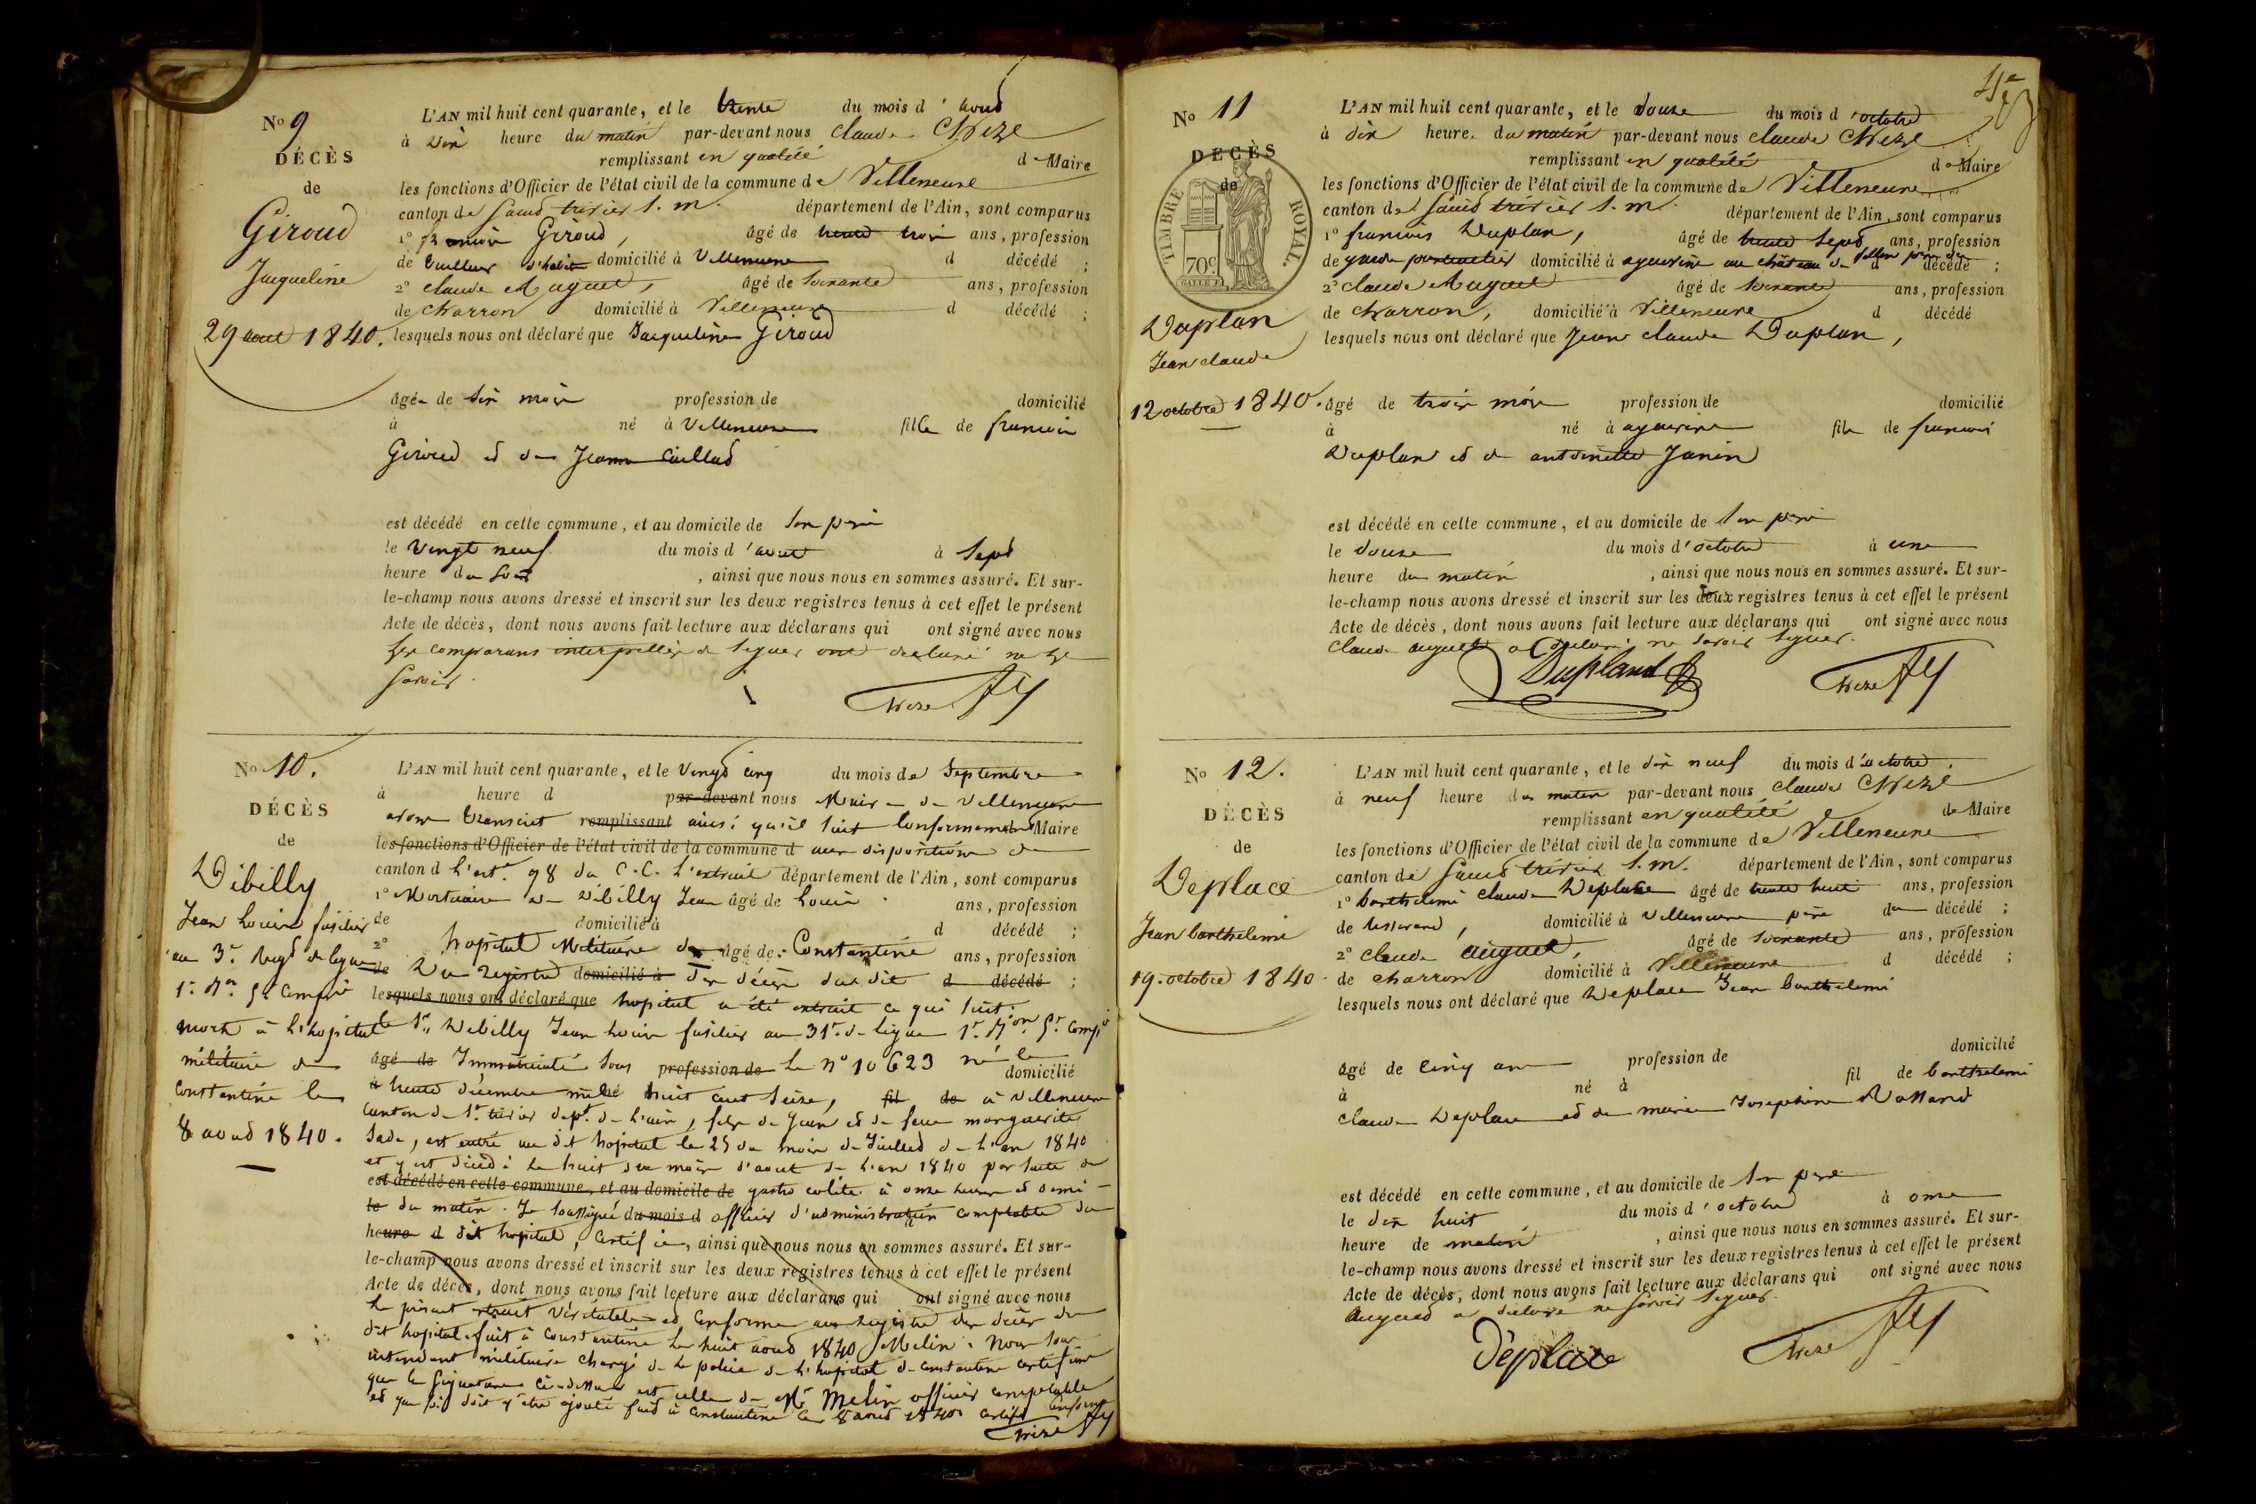 No 9
DÉCÈS
de
Giroud
Jacqueline
29 aout 1840.
L'AN mil huit cent quarante, et le trente du mois d'aout
à dix heure du matin par-devant nous claude Chize
remplissant en qualité de Maire
les fonctions d'Officier de l'état civil de la commune de Villeneuve
canton de saint trivier s. m. département de l'Ain, sont comparus
1° Giroud, âgé de trente trois ans, profession
de tailleur d'habits domicilié à Villeneuve d décédé ;
2° claude auguet, âgé de soixante ans, profession
de charron domicilié à Villeneuve d décédé ;
lesquels nous ont déclaré que Jacqueline Giroud
âgée de six mois profession de domicilié
à né à Villeneuve fille de francois
Giroud et de Jeanne
est décédé en cette commune, et au domicile de son père
le Vingt neuf du mois d'aout à sept
heure du soir , ainsi que nous nous en sommes assuré. Et sur-
le-champ nous avons dressé et inscrit sur les deux registres tenus à cet effet le présent
Acte de décès, dont nous avons fait lecture aux déclarans qui ont signé avec nous
les comparans interpellés de signer ont declaré ne le
savoir.
Chize
No 10.
DÉCÈS
de
Dibilly
Jean Louis fusilier
au 3e regt de ligne
mort à l'hopital
militaire de
Constantine le
8 aout 1840.
L'AN mil huit cent quarante, et le Vingt cinq du mois de Septembre
à heure d par-devant nous Maire de Villeneuve
avons transcrit remplissant ainsi qu'il suit conformement Maire
les fonctions d'Officier de l'état civil de la commune d aux dispositions de
canton d l'art. 98 du C. C. l'extrait département de l'Ain, sont comparus
1° Mortuaire de Dibilly Jean âgé de Louis ans, profession
de domicilié à d décédé ;
2° hopital Militaire de âgé de Constantine ans, profession
de Du registre domicilié à des décès du dit d décédé ;
lesquels nous ont déclaré que hopital a été extrait ce qui suit:
Dibilly Jean Louis fusilier au 31e de ligne
âgé de Immatriculé sous profession de le n° 10623 né le domicilié
à trente décembre mille huit cent seize, fil de à Villeneuve
canton de St trivier dept de l'ain, fils de Jean et de feue marguerite
Sade, est entré au dit hopital le 25 du mois de Juillet de l'an 1840
et y est décédé le huit du mois d'aout de l'an 1840 par suite de
est décédé en cette commune, et au domicile de gastro colite à onze heures et demi
le du matin. Je soussigné du mois d officier d'administration comptable du
heure d dit hopital, certifie, ainsi que nous nous en sommes assuré. Et sur-
le-champ nous avons dressé et inscrit sur les deux registres tenus à cet effet le présent
Acte de décès, dont nous avons fait lecture aux déclarans qui ont signé avec nous
le présent extrait Véritable et conforme au registre des décès du
dit hopital fait à Constantine le huit aout 1840 Melin. Nous sous
intendant militaire chargé de la police de l'hopital de constantine certifions
que la signature ci-dessus est celle de Mr Melin officier comptable
et que foi doit y être ajouté fait à constantine le 8 aout 1840 certifié conforme
Chize
No 11
DÉCÈS
de
TIMBRE ROYAL.
70c
Duplan
Jean claude
12 octobre 1840.
L'AN mil huit cent quarante, et le douze du mois d'octobre
à dix heure du matin par-devant nous claude Chize
remplissant en qualité de Maire
les fonctions d'Officier de l'état civil de la commune de Villeneuve
canton de saint trivier s. m. département de l'Ain, sont comparus
1° francois Duplan, âgé de trente sept ans, profession
de garde particulier domicilié à agnereins au château de d décédé ;
2° claude auguet âgé de soixante ans, profession
de charron, domicilié à Villeneuve d décédé
lesquels nous ont déclaré que Jean claude Duplan,
âgé de trois mois profession de domicilié
à né à agnereins fils de francois
Duplan et de antoinette Janin
est décédé en cette commune, et au domicile de son père
le douze du mois d'octobre à une
heure du matin , ainsi que nous nous en sommes assuré. Et sur-
le-champ nous avons dressé et inscrit sur les deux registres tenus à cet effet le présent
Acte de décès, dont nous avons fait lecture aux déclarans qui ont signé avec nous
claude auguet a declaré ne savoir signer.
Dupland
Chize
No 12.
DÉCÈS
de
Deplace
Jean barthelemi
19 octobre 1840
L'AN mil huit cent quarante, et le dix neuf du mois d'octobre
à neuf heure du matin par-devant nous claude Chize
remplissant en qualité de Maire
les fonctions d'Officier de l'état civil de la commune de Villeneuve
canton de saint trivier s. m. département de l'Ain, sont comparus
1° barthelemi claude Deplace âgé de trente huit ans, profession
de tisserand, domicilié à Villeneuve père du décédé ;
2° claude auguet, âgé de soixante ans, profession
de charron domicilié à Villeneuve d décédé ;
lesquels nous ont déclaré que Deplace Jean barthelemi
âgé de cinq ans profession de domicilié
à né à fil de barthelemi
claude Deplace et de marie Josephine Rolland
est décédé en cette commune, et au domicile de son père
le dix huit du mois d'octobre à onze
heure de matin , ainsi que nous nous en sommes assuré. Et sur-
le-champ nous avons dressé et inscrit sur les deux registres tenus à cet effet le présent
Acte de décès, dont nous avons fait lecture aux déclarans qui ont signé avec nous
auguet a declaré ne savoir signer.
Déplace
Chize